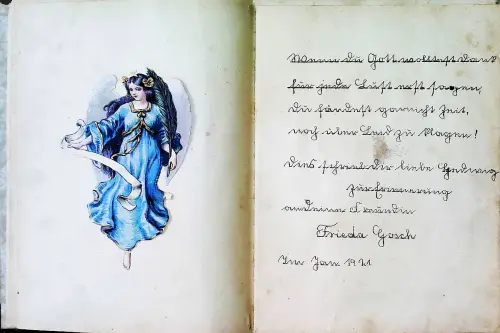 Wenn du Gott wolltest Dank
für jede Lust erst sagen,
du fändest garnicht Zeit,
noch über Leid zu klagen!
Dies schrieb dir liebe Hedwig
zur Erinnerung
an deine Freundin
Frieda Gosch
Im Jan 1921